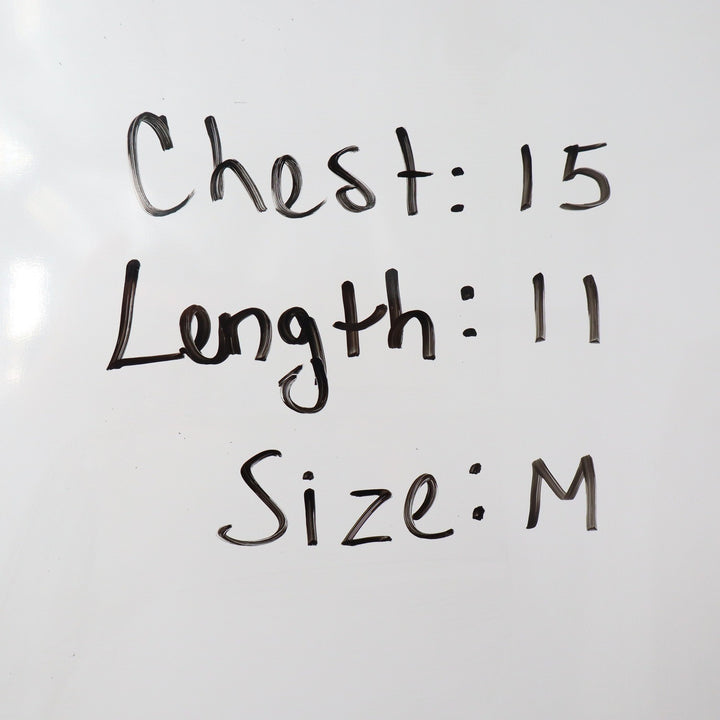 Chest: 15
Length: 11
Size: M